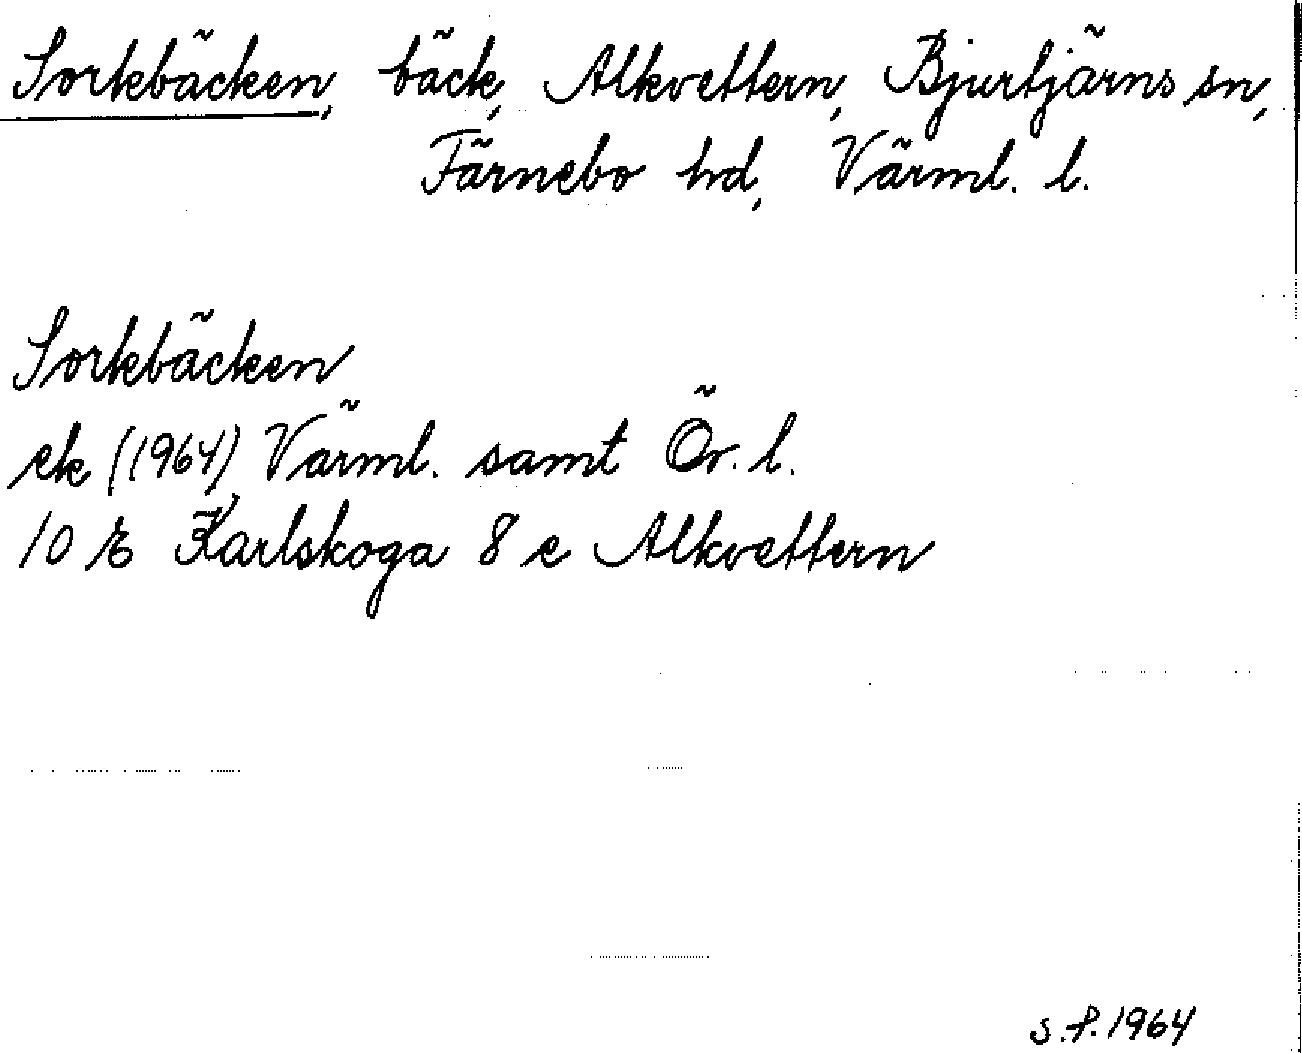 Sorkbäcken, bäck, Alkvettern, Bjurtjärns sn,
Färnebo hd, Värml. l.
Sorkbäcken
ek (1964) Värml. samt Ör. l.
10 E Karlskoga 8 e Alkvettern
s. f. 1964